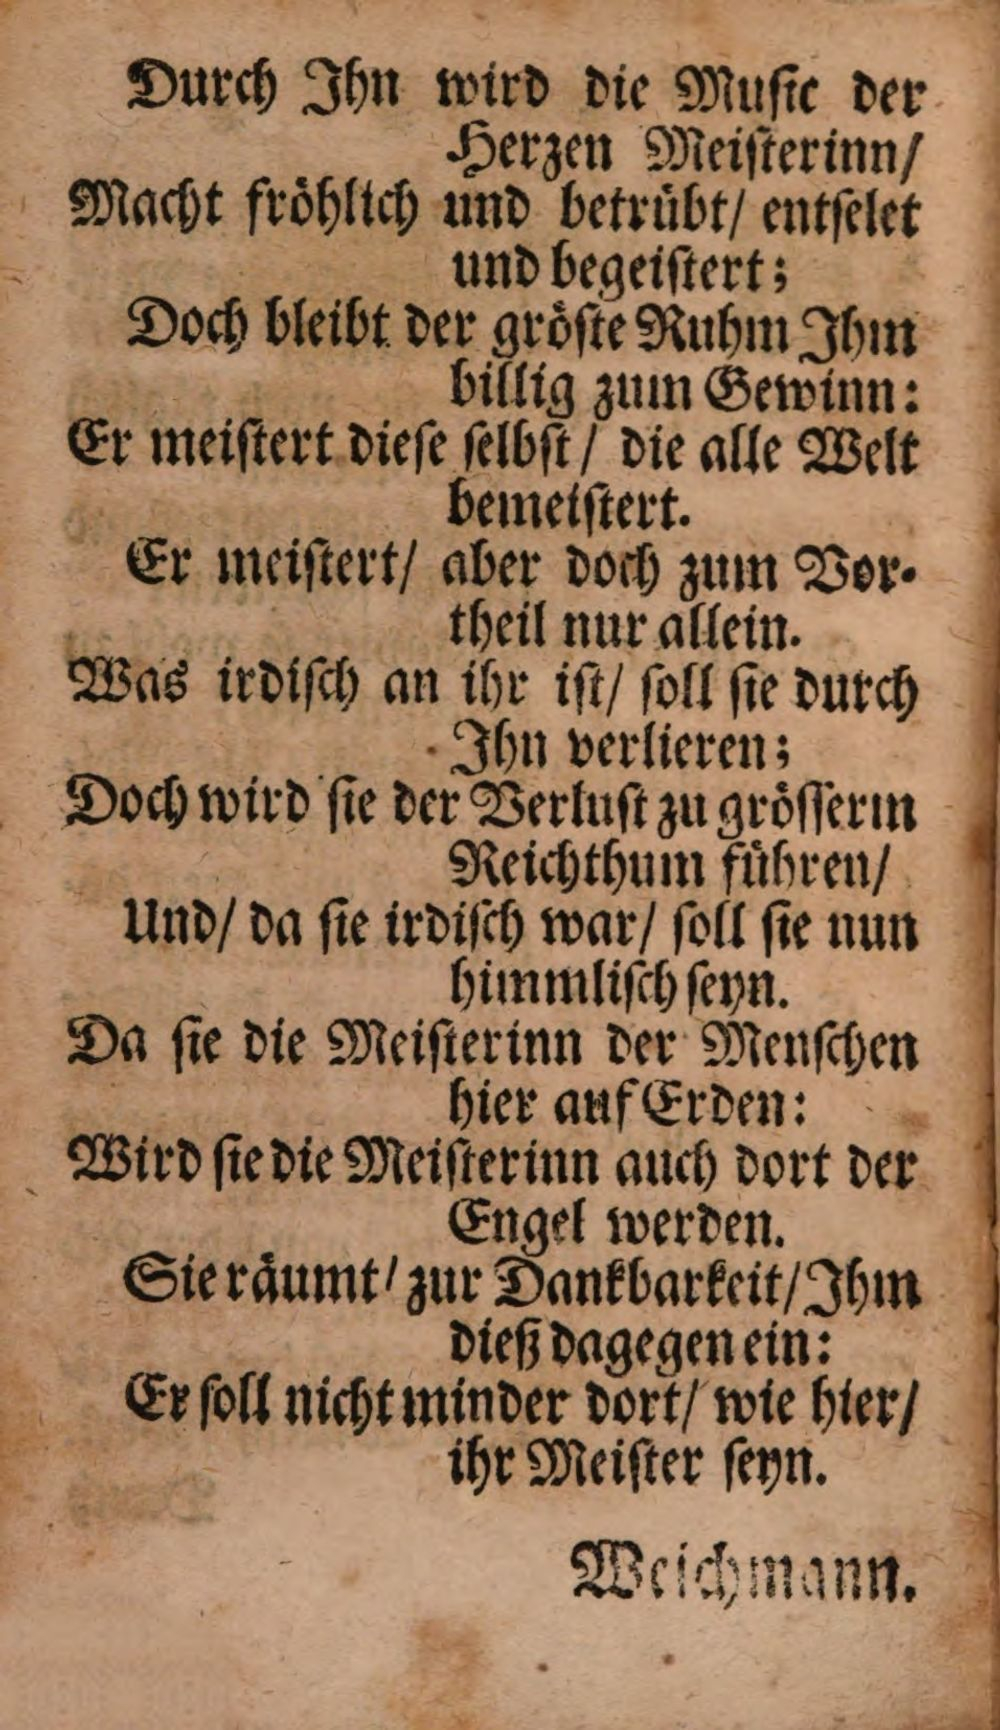 Durch Ihn wird die Music der
Herzen Meisterinn/
Macht fröhlich und betrübt/ entselet
und begeistert;
Doch bleibt der gröste Ruhm Ihm
billig zum Gewinn:
Er meistert diese selbst/ die alle Welt
bemeistert.
Er meistert/ aber doch zum Vor-
theil nur allein.
Was irdisch an ihr ist/ soll sie durch
Ihn verlieren;
Doch wird sie der Verlust zu grösserm
Reichthum führen/
Und/ da sie irdisch war/ soll sie nun
himmlisch seyn.
Da sie die Meisterinn der Menschen
hier auf Erden:
Wird sie die Meisterinn auch dort der
Engel werden.
Sie räumt/ zur Dankbarkeit/ Ihm
dieß dagegen ein:
Er soll nicht minder dort/ wie hier/
ihr Meister seyn.
Weichmann.